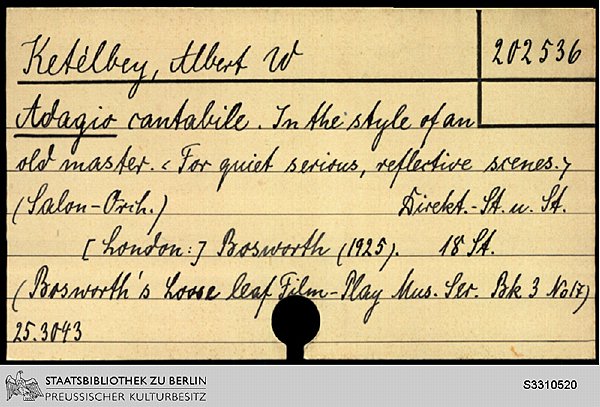 Ketèlbey, Albert W
202536
Adagio cantabile. In the style of an
old master. < For quiet serious, reflective scenes. >
(Salon-Orch.) Direkt.-St. u. St.
[London:] Bosworth (1925). 18 St.
(Bosworth's Loose leaf Film-Play Mus. Ser. Bk 3 No 17)
25.3043
STAATSBIBLIOTHEK ZU BERLIN
PREUSSISCHER KULTURBESITZ
S3310520